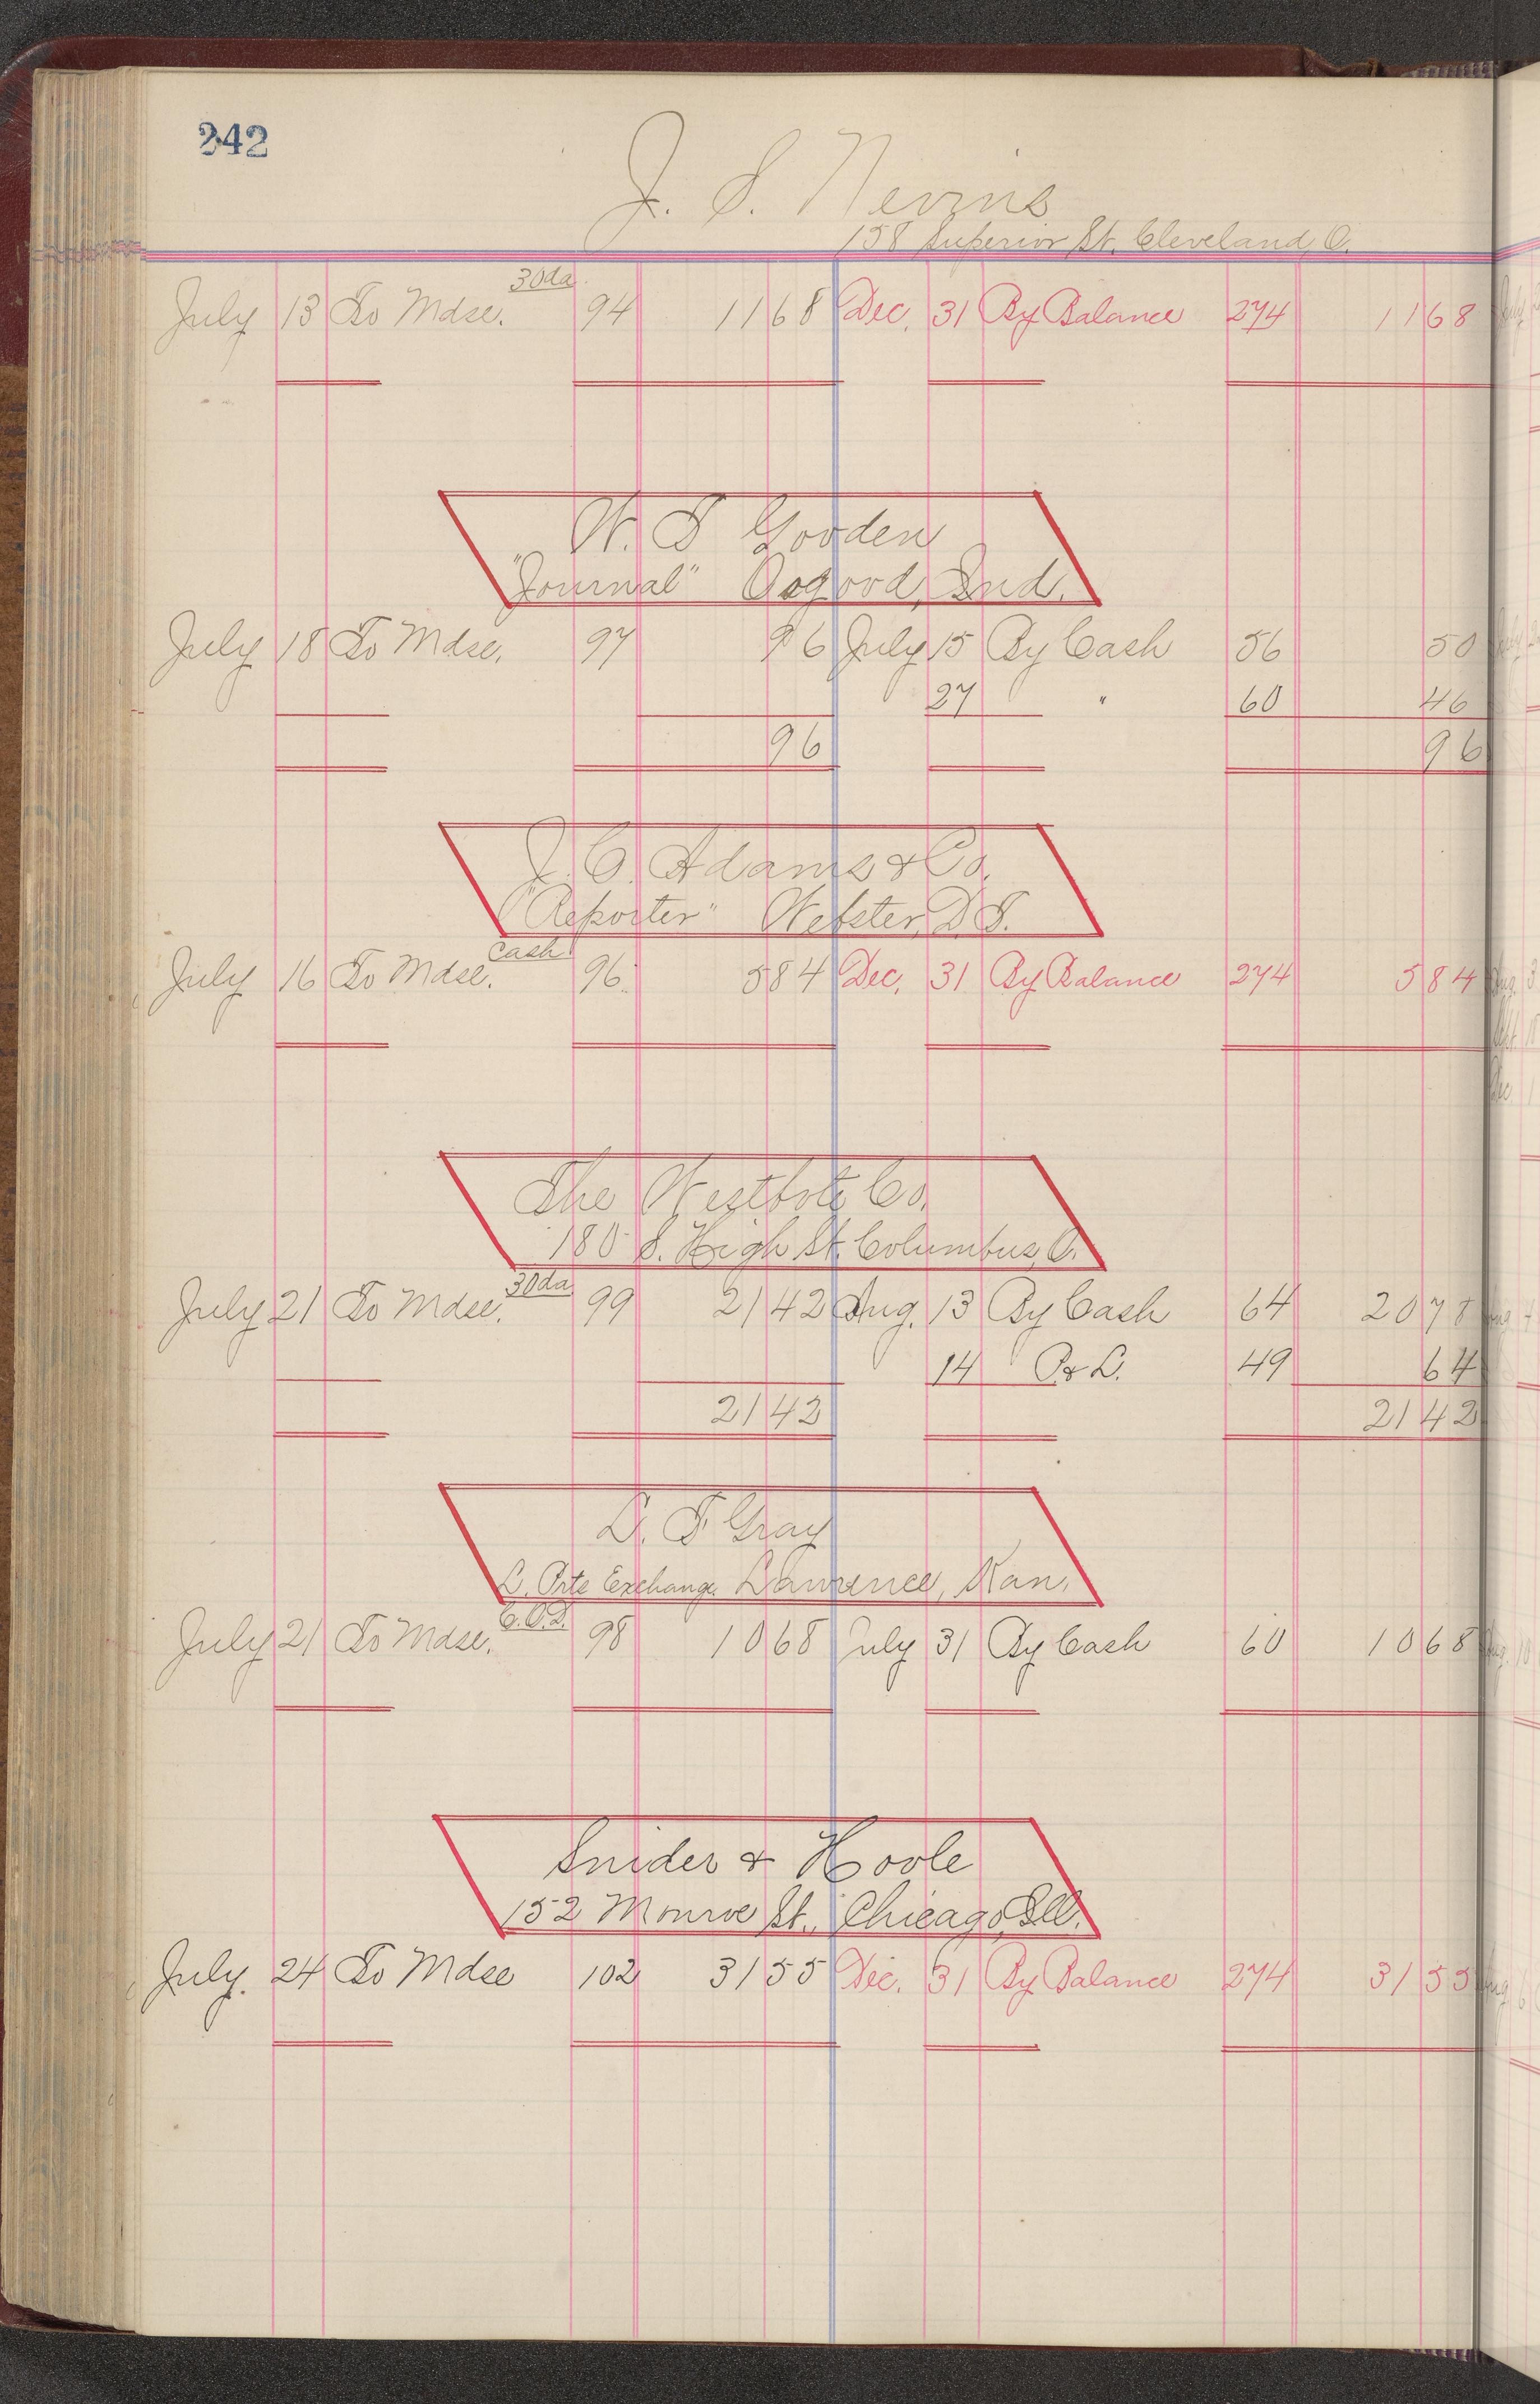 242
J. S. Nevins
158 Superior St. Cleveland, O.
July 13 To Mdse. 30da 94 11 68 Dec. 31 By Balance 274 11 68
W. T Gooden
"Journal" Osgood, Ind.
July 18 To Mdse. 97 96 July 15 By Cash 56 50
27 " 60 46
96 96
J. C. Adams & Co.
"Reporter" Webster, D.T.
July 16 To Mdse. Cash 96 5 84 Dec. 31 By Balance 274 5 84
The Westbote Co.
180 S. High St. Columbus, O.
July 21 To Mdse. 30da 99 21 42 Aug. 13 By Cash 64 20 78
14 P & L. 49 64
21 42 21 42
L. T. Gray
L. Arts Exchange. Lawrence, Kan.
July 21 To Mdse. C.O.D. 98 10 68 July 31 By Cash 60 10 68
Snider & Hoole
152 Monroe St., Chicago, Ill.
July. 24 To Mdse 102 31 55 Dec. 31 By Balance 274 31 55